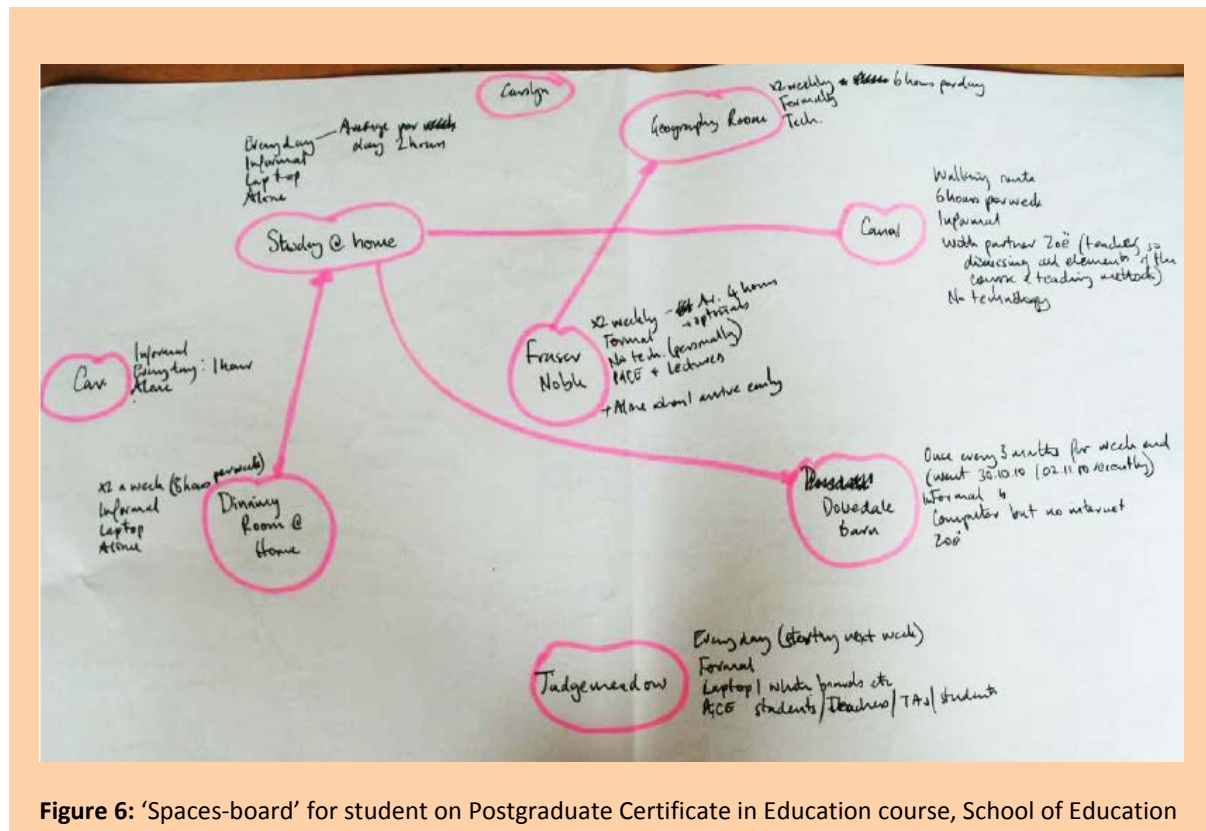 Carolyn
Geography Room
x2 weekly 6 hours per day
Formally
Tech.
Everyday — Average per
day 2 hours
Informal
Laptop
Alone
Study @ home
Canal
Walking route
6 hours per week
Informal
With partner Zoë (teacher, so
discussing all elements of the
course & teaching methods)
No technology
Fraser
Noble
x2 weekly - Av. 4 hours
+ optionals
Formal
No tech. (personally)
PGCE + Lectures
+ Alone when I arrive early
Car
Informal
Everyday : 1 hour
Alone
x2 a week (8 hours per week)
Informal
Laptop
Alone
Dinning
Room @
Home
Dovedale
Barn
Once every 3 months for week end
(went 30.10.10 / 02.11.10 recently)
Informal
Computer but no internet
Zoë
Judgemeadow
Everyday (starting next week)
Formal
Laptop / white boards etc
PGCE students / Teachers / TAs / students
Figure 6: ‘Spaces-board’ for student on Postgraduate Certificate in Education course, School of Education